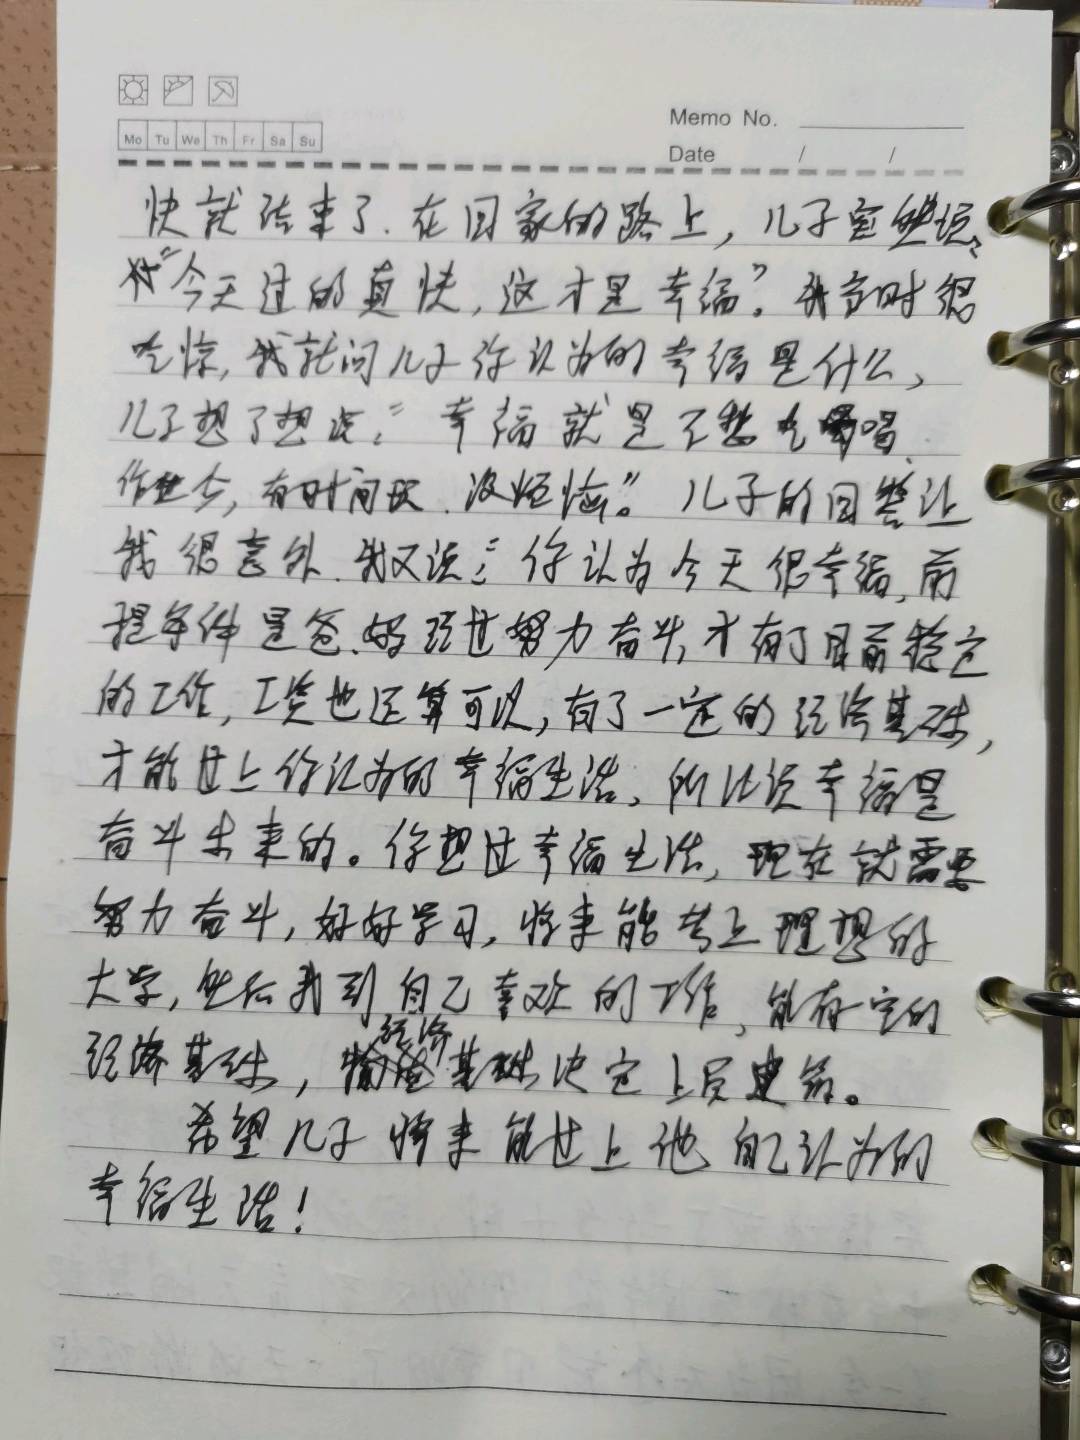 Mo Tu We Th Fr Sa Su
Memo No.
Date / /
快就结束了.在回家的路上,儿子突然说:
"今天过的真快,这才是幸福"。我当时很
吃惊,我就问儿子你认为的幸福是什么,
儿子想了想说:"幸福就是不愁吃喝,
作业少,有时间玩、没烦恼。"儿子的回答让
我很意外.我又说:"你认为今天很幸福,前
提条件是爸、妈经过努力奋斗,才有了目前稳定
的工作,工资也还算可以,有了一定的经济基础,
才能过上你认为的幸福生活、所以说幸福是
奋斗出来的。你想过幸福生活,现在就需要
努力奋斗,好好学习,将来能考上理想的
大学,然后找到自己喜欢的工作,能有一定的
经济基础,经济基础决定上层建筑。
希望儿子将来能过上他自己认为的
幸福生活!